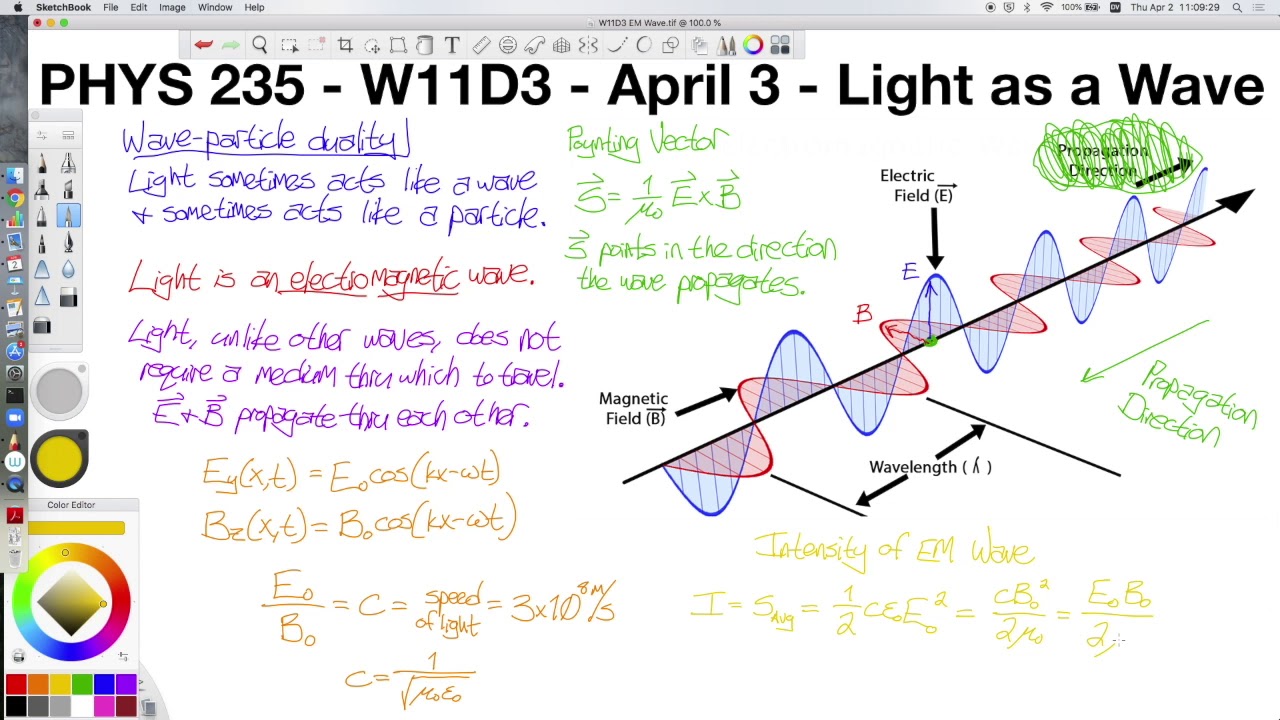 SketchBook File Edit Image Window Help
100% Thu Apr 2 11:09:29
W11D3 EM Wave.tif @ 100.0 %
PHYS 235 - W11D3 - April 3 - Light as a Wave
Wave-particle duality
Light sometimes acts like a wave
& sometimes acts like a particle.
Light is an electromagnetic wave.
Light, unlike other waves, does not
require a medium thru which to travel.
E⃗ & B⃗ propagate thru each other.
E_y(x,t) = E₀cos(kx-ωt)
B_z(x,t) = B₀cos(kx-ωt)
E₀/B₀ = c = speed of light = 3x10⁸ m/s
c = 1/√(μ₀ε₀)
Poynting Vector
S⃗ = 1/μ₀ E⃗ x B⃗
S⃗ points in the direction
the wave propagates.
Propagation
Direction
Electric
Field (E⃗)
E
B
Magnetic
Field (B⃗)
Wavelength (λ)
Propagation
Direction
Intensity of EM Wave
I = S_Avg = 1/2 cε₀E₀² = cB₀²/2μ₀ = E₀B₀/2
Color Editor